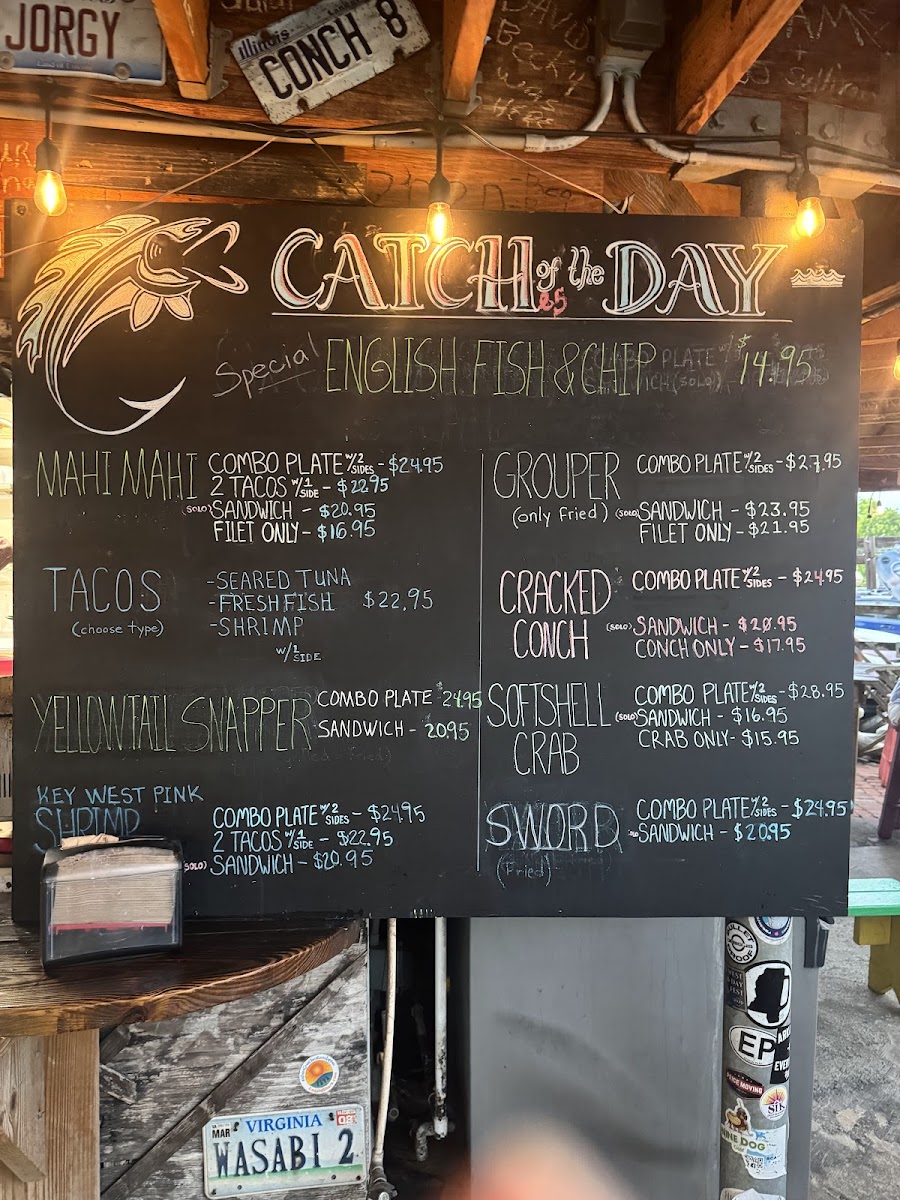 JORGY
Illinois
CONCH 8
DAVID
Becky
Was
Here
CATCH of the DAY
Special ENGLISH FISH & CHIP $14.95
MAHI MAHI
COMBO PLATE w/2 SIDES - $24.95
2 TACOS w/1 SIDE - $22.95
(SOLO) SANDWICH - $20.95
FILET ONLY - $16.95
TACOS
(choose type)
- SEARED TUNA
- FRESH FISH $22.95
- SHRIMP
w/1 SIDE
YELLOWTAIL SNAPPER
COMBO PLATE 24.95
SANDWICH - 20.95
KEY WEST PINK
SHRIMP
COMBO PLATE w/2 SIDES - $24.95
2 TACOS w/1 SIDE - $22.95
(SOLO) SANDWICH - $20.95
GROUPER
(only Fried)
COMBO PLATE w/2 SIDES - $27.95
(SOLO) SANDWICH - $23.95
FILET ONLY - $21.95
CRACKED
CONCH
COMBO PLATE w/2 SIDES - $24.95
(SOLO) SANDWICH - $20.95
CONCH ONLY - $17.95
SOFTSHELL
CRAB
COMBO PLATE w/2 SIDES - $28.95
(SOLO) SANDWICH - $16.95
CRAB ONLY - $15.95
SWORD
(Fried)
COMBO PLATE w/2 SIDES - $24.95
SANDWICH - $20.95
EP
MAR
VIRGINIA
WASABI 2